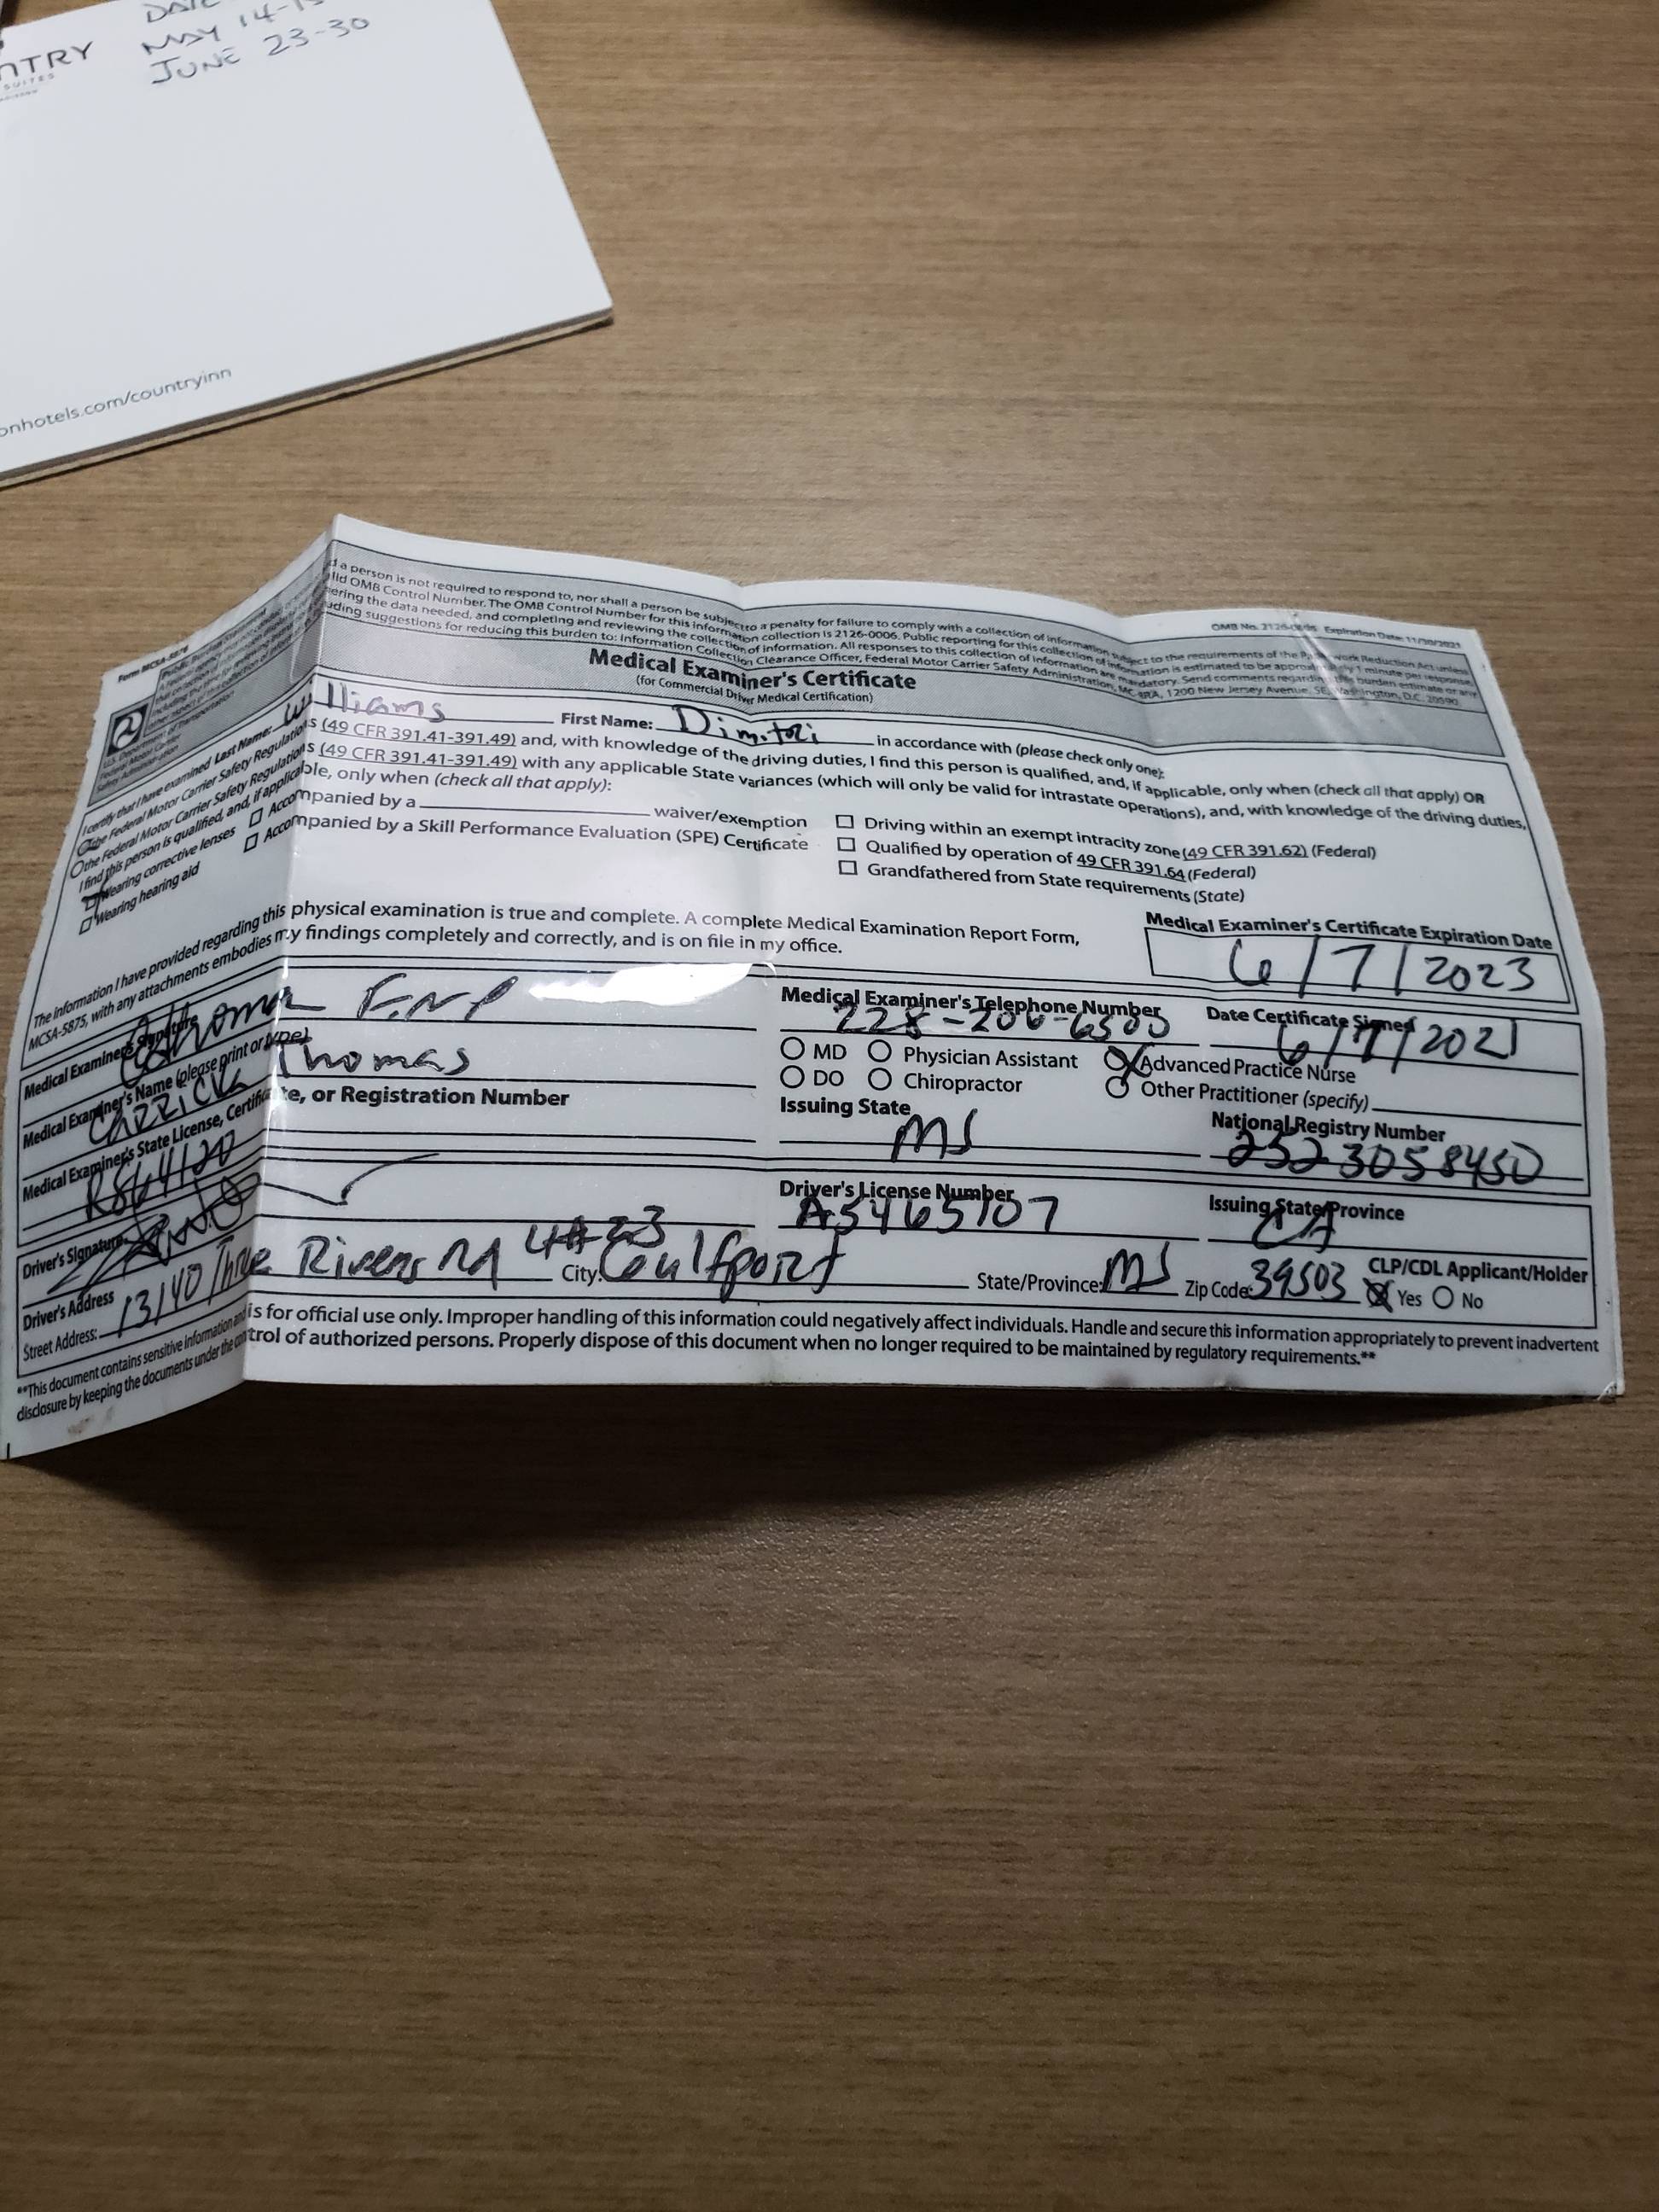 DATE
MAY 14-1
JUNE 23-30
NTRY
SUITES
onhotels.com/countryinn
Form MCSA-5876
OMB No. 2126-0006 Expiration Date: 11/30/2021
d a person is not required to respond to, nor shall a person be subject to a penalty for failure to comply with a collection of information subject to the requirements of the Paperwork Reduction Act unless
lid OMB Control Number. The OMB Control Number for this information collection is 2126-0006. Public reporting for this collection of information is estimated to be approximately 1 minute per response,
ering the data needed, and completing and reviewing the collection of information. All responses to this collection of information are mandatory. Send comments regarding this burden estimate or any
uding suggestions for reducing this burden to: Information Collection Clearance Officer, Federal Motor Carrier Safety Administration, MC-RRA, 1200 New Jersey Avenue, SE, Washington, D.C. 20590.
U.S. Department of Transportation
Federal Motor Carrier
Safety Administration
Medical Examiner's Certificate
(for Commercial Driver Medical Certification)
I certify that I have examined Last Name: Williams First Name: Dimitri in accordance with (please check only one):
the Federal Motor Carrier Safety Regulations (49 CFR 391.41-391.49) and, with knowledge of the driving duties, I find this person is qualified, and, if applicable, only when (check all that apply) OR
the Federal Motor Carrier Safety Regulations (49 CFR 391.41-391.49) with any applicable State variances (which will only be valid for intrastate operations), and, with knowledge of the driving duties,
I find this person is qualified, and, if applicable, only when (check all that apply):
Wearing corrective lenses Accompanied by a waiver/exemption Driving within an exempt intracity zone (49 CFR 391.62) (Federal)
Wearing hearing aid Accompanied by a Skill Performance Evaluation (SPE) Certificate Qualified by operation of 49 CFR 391.64 (Federal)
Grandfathered from State requirements (State)
The information I have provided regarding this physical examination is true and complete. A complete Medical Examination Report Form,
MCSA-5875, with any attachments embodies my findings completely and correctly, and is on file in my office.
Medical Examiner's Certificate Expiration Date
6/7/2023
Medical Examiner's Signature
CThomas FNP
Medical Examiner's Telephone Number
228-206-6500
Date Certificate Signed
6/7/2021
Medical Examiner's Name (please print or type)
CARRICK Thomas
MD Physician Assistant Advanced Practice Nurse
DO Chiropractor Other Practitioner (specify)
Medical Examiner's State License, Certificate, or Registration Number
R864120
Issuing State
MS
National Registry Number
2523058450
Driver's Signature
Driver's License Number
A5465707
Issuing State/Province
CA
Driver's Address
Street Address: 13140 Three Rivers Rd 4#23 City: Gulfport State/Province: MS Zip Code: 39503
CLP/CDL Applicant/Holder
Yes No
**This document contains sensitive information and is for official use only. Improper handling of this information could negatively affect individuals. Handle and secure this information appropriately to prevent inadvertent
disclosure by keeping the documents under the control of authorized persons. Properly dispose of this document when no longer required to be maintained by regulatory requirements.**